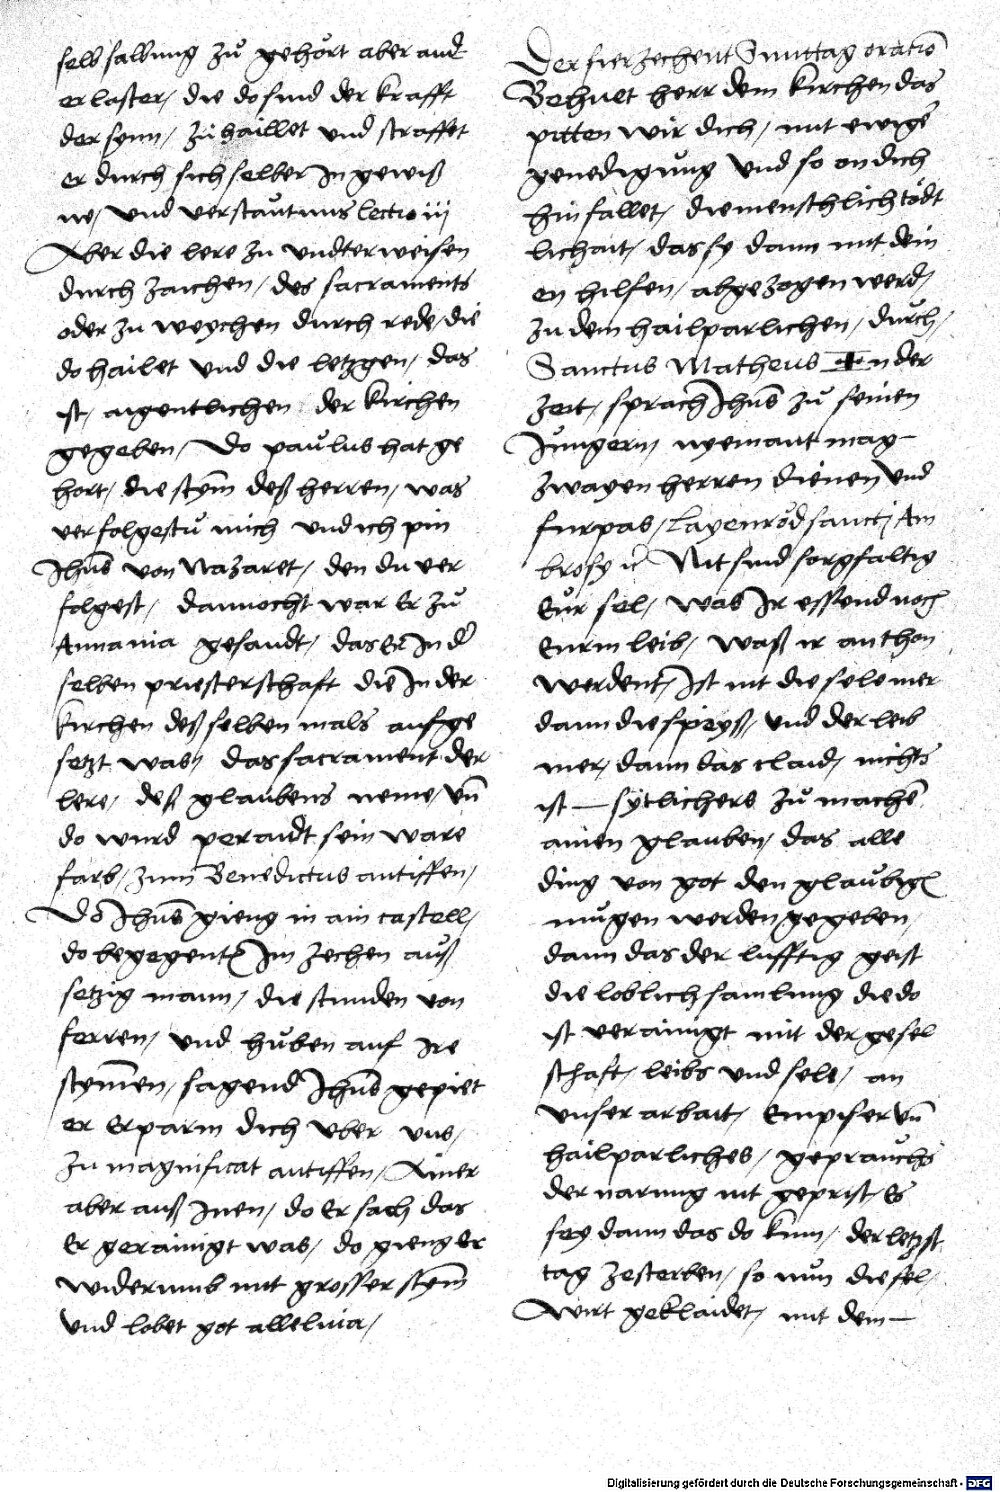 selb salbung zů gehört aber and
er laster, die do sind der krafft
der synn, zů haillet und straffet
er durch sich selber In gewiß
ne, und verstantnus Lectio iij
Aber die lere zu undterweisen
durch zaichen, des sacraments
oder zu weychen durch rede, die
do hailet und die letzgen, das
ist, aigentlichen der kirchen
gegeben, Do paulus hat ge
hort, die stym̄ deß herren, was
verfolgestu mich und ich pin
Jhūs von Nazaret, den du ver
folgest, dannocht war Er zů
Annania gesandt, das Er In d'
selben priesterschaft die In der
kirchen deß selben mals aufge
setzt was, das sacrament der
lere, deß glaubens neme, un̄
do wurd peraidt sein ware
farb, zum Benedictus antiffen,
Do Jhūs gieng in ain castell,
do begegent Im zehen auß
setzig mann, die stunden von
ferren, und huben auf Ire
stymen, sagend Jhūs gepiet
er Erparm dich uber uns,
zu magnificat antiffen, Ainer
aber auß Inen, do Er sach das
Er gerainigt was, do gieng Er
widerumb mit grosser stym̄
und lobet got alleluia,
Der fierzechent Sunttag oratio
Behuet herr dein kirchen das
pitten wir dich, mit ewigē
genedigung und so on dich
hin fallet, die menschlich tödt
lichait, das sy dann mit dein
en hilfen, abgezogen werd,
zu dem hailparlichen, durch,
Sanctus Matheus In der
zeit, sprach Jhūs zů seinen
Jungern, nyemant mag
zwayen herren dienen und
furpas, Layenröd sancti Am
brosy Nit sind sorgfaltig
Eur sel, was Ir essend noch
Eurm leib, waß ir anthon
werdent, Ist nit die sele mer
dann die speyß, und der leib
mer, dann das claid, nichts
ist sytlichers zů machē
ainen glauben, das alle
ding von got den glaubigē
mugen werden gegeben,
dann das der lufftig geist
die loblich samlung die do
ist verainigt mit der gesel
schaft, leibs und sele, an
unser arbait, Empiser un̄
hailparliches, geprauchs
der narung nit geprist, Es
sey dann das do kum, der letzst
tag zesterben, so nun die sel,
Wirt geklaidet, mit dem
Digitalisierung gefördert durch die Deutsche Forschungsgemeinschaft - DFG